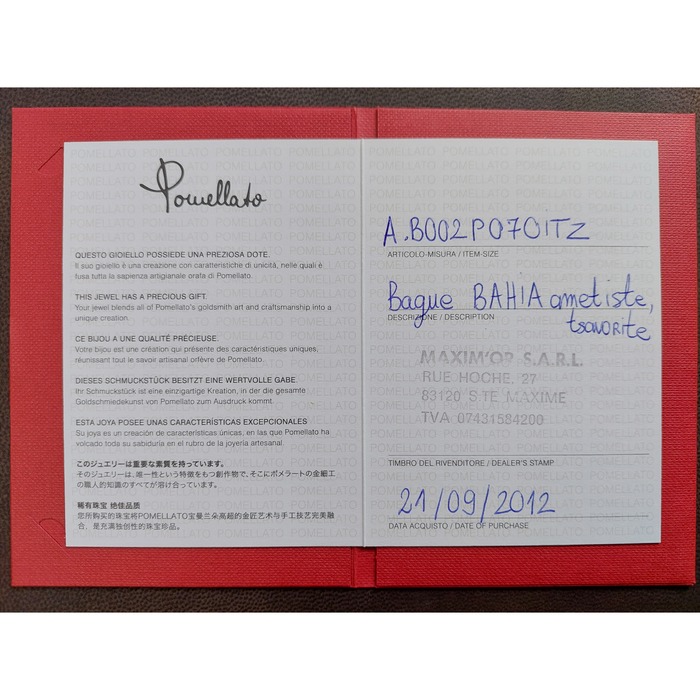 Pomellato
QUESTO GIOIELLO POSSIEDE UNA PREZIOSA DOTE.
Il suo gioiello è una creazione con caratteristiche di unicità, nelle quali è
fusa tutta la sapienza artigianale orafa di Pomellato.
THIS JEWEL HAS A PRECIOUS GIFT.
Your jewel blends all of Pomellato's goldsmith art and craftsmanship into a
unique creation.
CE BIJOU A UNE QUALITÉ PRÉCIEUSE.
Votre bijou est une création qui présente des caractéristiques uniques,
réunissant tout le savoir artisanal orfèvre de Pomellato.
DIESES SCHMUCKSTÜCK BESITZT EINE WERTVOLLE GABE.
Ihr Schmuckstück ist eine einzigartige Kreation, in der die gesamte
Goldschmiedekunst von Pomellato zum Ausdruck kommt.
ESTA JOYA POSEE UNAS CARACTERÍSTICAS EXCEPCIONALES
Su joya es un creación de características únicas, en las que Pomellato ha
volcado toda su sabiduría en el rubro de la joyería artesanal.
このジュエリーは重要な素質を持っています。
そのジュエリーは、唯一性という特徴をもつ創作物で、そこにポメラートの金細工
の職人的知識のすべてが溶け合っています。
稀有珠宝 绝佳品质
您所购买的珠宝将POMELLATO宝曼兰朵高超的金匠艺术与手工技艺完美融
合，是充满独创性的珠宝珍品。
A.B002P07OITZ
ARTICOLO-MISURA / ITEM-SIZE
Bague BAHIA ametiste,
tsavorite
DESCRIZIONE / DESCRIPTION
MAXIM'OR S.A.R.L.
RUE HOCHE, 27
83120 S.TE MAXIME
TVA 07431584200
TIMBRO DEL RIVENDITORE / DEALER'S STAMP
21/09/2012
DATA ACQUISTO / DATE OF PURCHASE